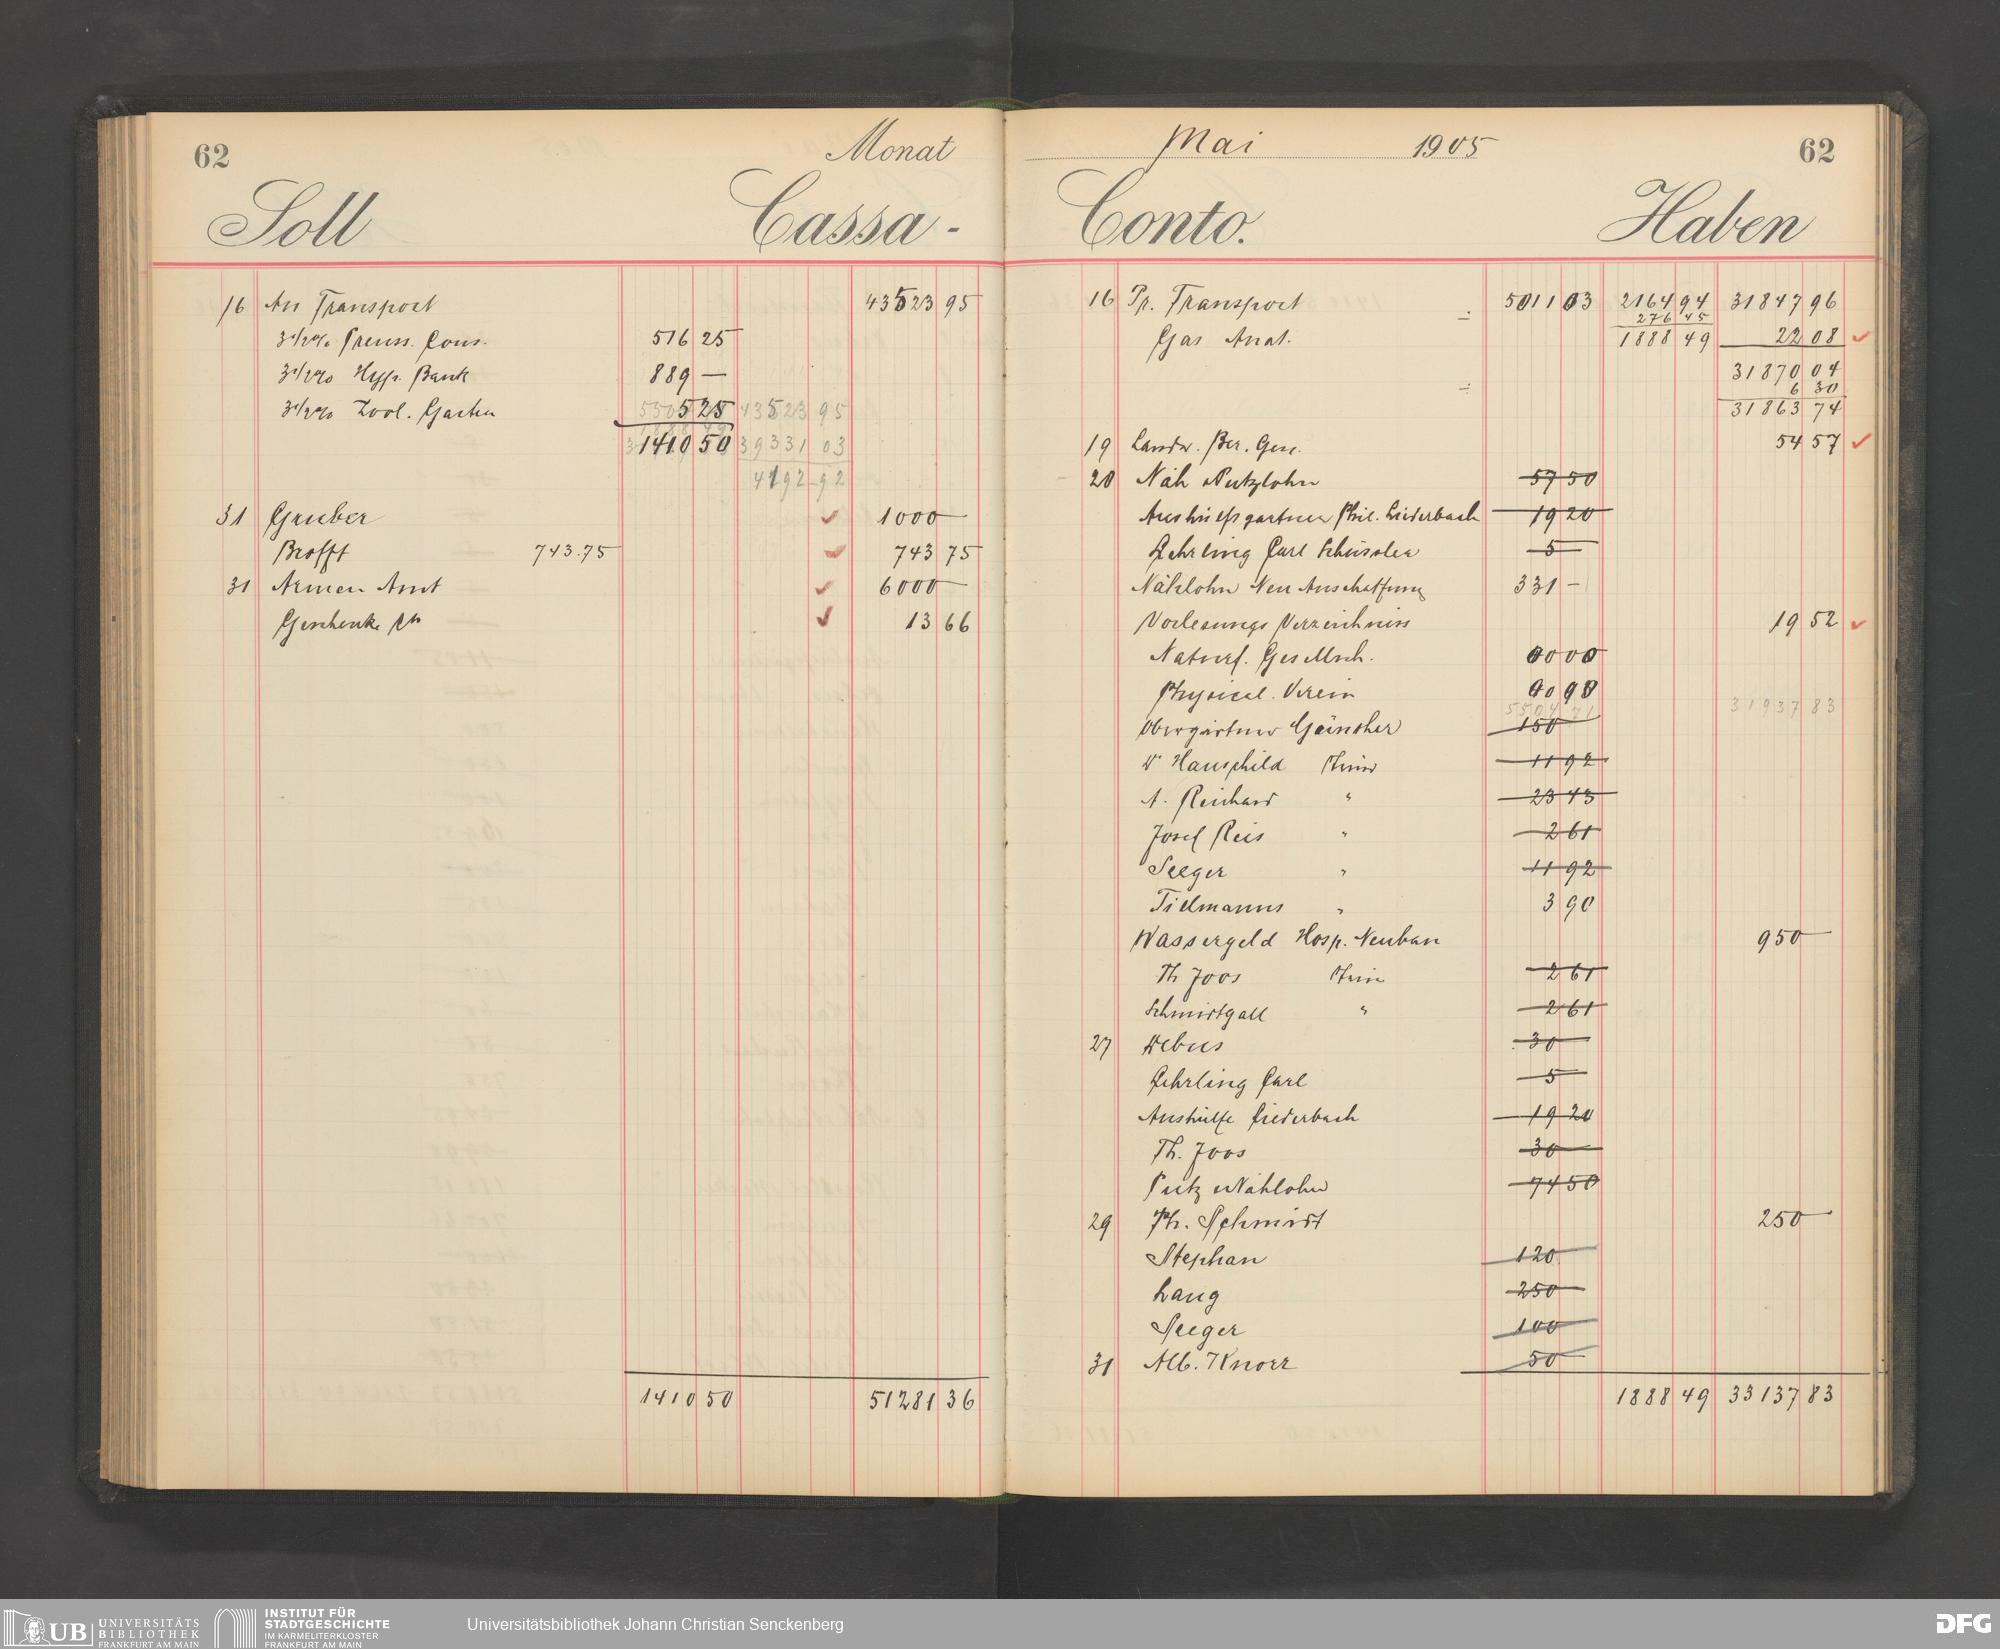 62 Monat
Soll Cassa-
16 An Transport 43523 95
3 1/2% Preuss. Cons. 516 25
3 1/2% Hyp. Bank 889 —
3 1/2% Zool. Garten 5 25 43523 95
1410 50 39331 03
4192 92
31 Gruber 1000 —
Brofft 743.75 743 75
31 Armen Amt 6000 —
Geschenke 13 66
1410 50 51281 36
Mai 1905 62
Conto. Haben
16 Pr. Transport 5011 03 2164 94 31847 96
276 45
Gas Anat. 1888 49 22 08
31870 04
6 30
31863 74
19 Landw. Ber. Gen. 54 57
20 Näh u Putzlohn 57 50
Aushilfsgärtner Phil. Liederbach 19 20
Lehrling Carl Schüssler 5
Nählohn Neu Anschaffung 331 —
Vorlesungs Verzeichniss 19 52
Naturf. Gesellsch.
Physical. Verein
5504 71 31937 83
Obergärtner Günther 150
Dr Hauschild 11 92
A. Reichard " 23 43
Josef Reis " 2 61
Seeger " 11 92
Tielmanns " 3 90
Wassergeld Hosp. Neubau 950 —
Th Joos 2 61
Schmidtgall " 2 61
27 Debus 30
Lehrling Carl 5
Aushülfe Liederbach 19 20
Th. Joos 30
Putz u Nählohn 74 50
29 Ph. Schmidt 250 —
Stephan 120
Lang 250
Seeger 100
31 Alb. Knorr 50
1888 49 33137 83
UB UNIVERSITÄTS
BIBLIOTHEK
FRANKFURT AM MAIN
INSTITUT FÜR
STADTGESCHICHTE
IM KARMELITERKLOSTER
FRANKFURT AM MAIN
Universitätsbibliothek Johann Christian Senckenberg
DFG